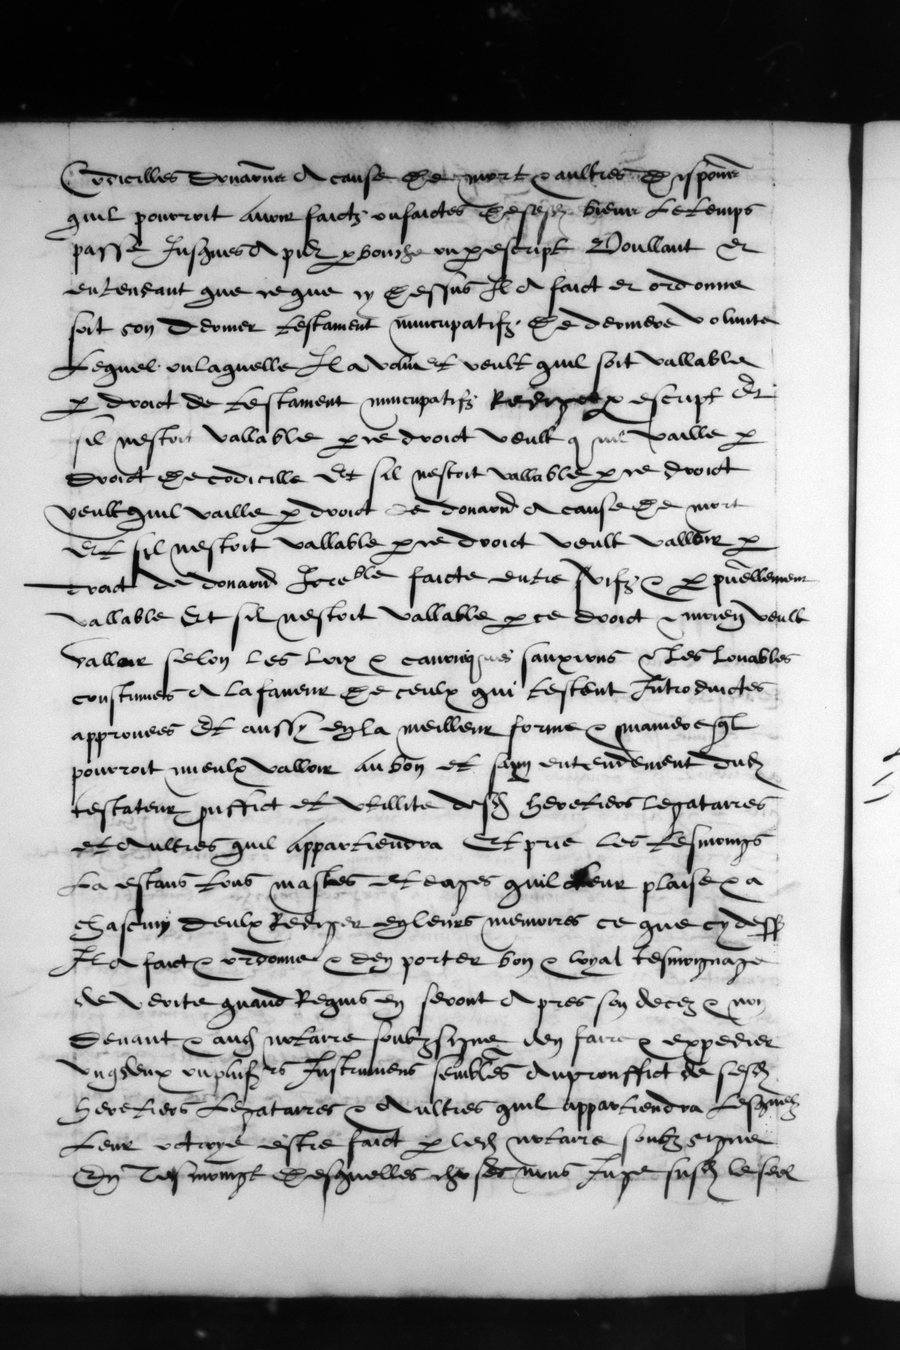 Codicilles donacion A cause de mort & aultres disposicion
quil pourroit Avoir faictz ou faictes de sesd biens Le temps
passe Jusques A pnt p bouche ou p escript Voullant Et
entendant que ce que cy dessus Il A faict et ordonne
soit son dernier testament nuncupatifz & derniere volunte
Lequel ou laquelle Il a volu Et veult quil soit vallable
p droict de testament nuncupatifz Redige p escript Et
sil nestoit vallable p ce droict veult quil vaille p
droict de codicille Et sil nestoit vallable p ce droict
veult quil vaille p droict de donacion A cause de mort
Et sil nestoit vallable p ce droict veult valloir p
droict de donacion Irrevocable faicte entre vifz & p pntellement
vallable Et sil nestoit vallable p ce droict & moien veult
valloir selon les Loix & canoniques sanxions & Les Louables
constumes A la faveur de ceulx qui testent Introductes
approuvees Et aussy en la meilleur forme & maniere quil
pourroit mieulx valloir Au bon et sain entendement dud
testateur prouffict et utillite desd heretiers legataires
et Aultres quil appartiendra Et prie Les tesmoings
La estans tous masles et eages quil Leur plaise & a
chascung deulx Rediger en leurs memoires ce que cy dess
Il A faict & ordonne & den porter bon & loyal tesmoignage
de verite quand Requis en seront Apres son decez & non
devant & aud notaire soubzsigne den faire & expedier
ung deux ou plusrs Instrumens semblables Au prouffict de sesd
heretiers Legataires & Aultres quil appartiendra Lesquelz
Leur octroye estre faict p led notaire soubz signe
En Tesmoingt desquelles choses nous Juge susd le seel